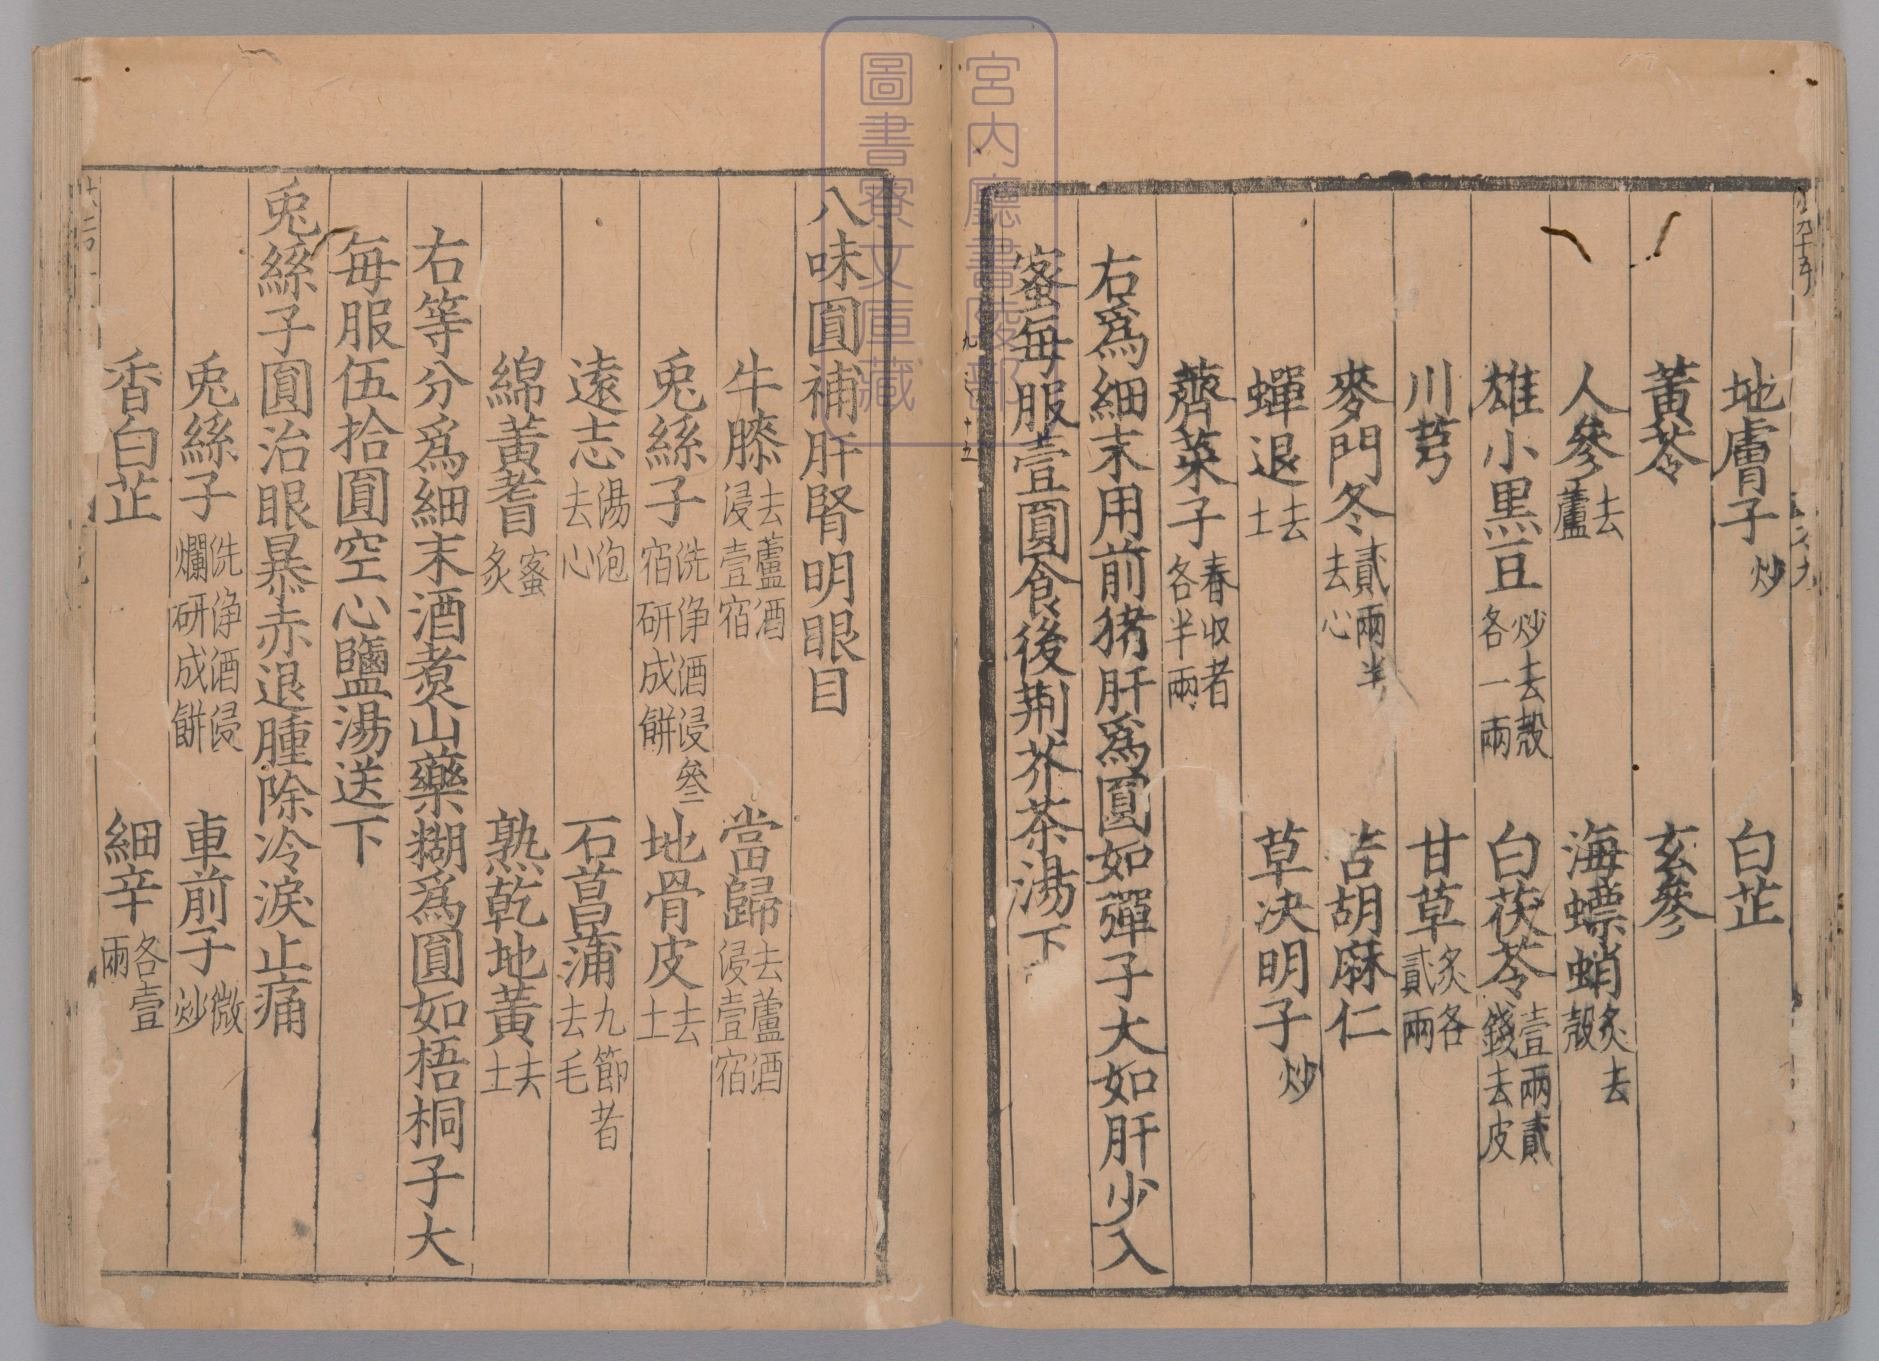 地膚子炒　白芷
黃芩　玄參
人參去蘆　海螵蛸炙去殼
雄小黑豆炒去殼各一兩　白茯苓壹兩貳錢去皮
川芎　甘草炙各貳兩
麥門冬貳兩半去心　苦胡麻仁
蟬退去土　草決明子炒
薺菜子春收者各半兩
右爲細末用前猪肝爲圓如彈子大如肝少入
蜜每服壹圓食後荆芥茶湯下
八味圓補肝腎明眼目
牛膝去蘆酒浸壹宿　當歸去蘆酒浸壹宿
兎絲子洗淨酒浸叁宿研成餅　地骨皮去土
遠志湯泡去心　石菖蒲九節者去毛
綿黃耆蜜炙　熟乾地黃去土
右等分爲細末酒煮山藥糊爲圓如梧桐子大
每服伍拾圓空心鹽湯送下
兎絲子圓治眼暴赤退腫除冷淚止痛
兎絲子洗淨酒浸爛研成餅　車前子微炒
香白芷　細辛各壹兩
宮内廳書陵部
圖書寮文庫藏